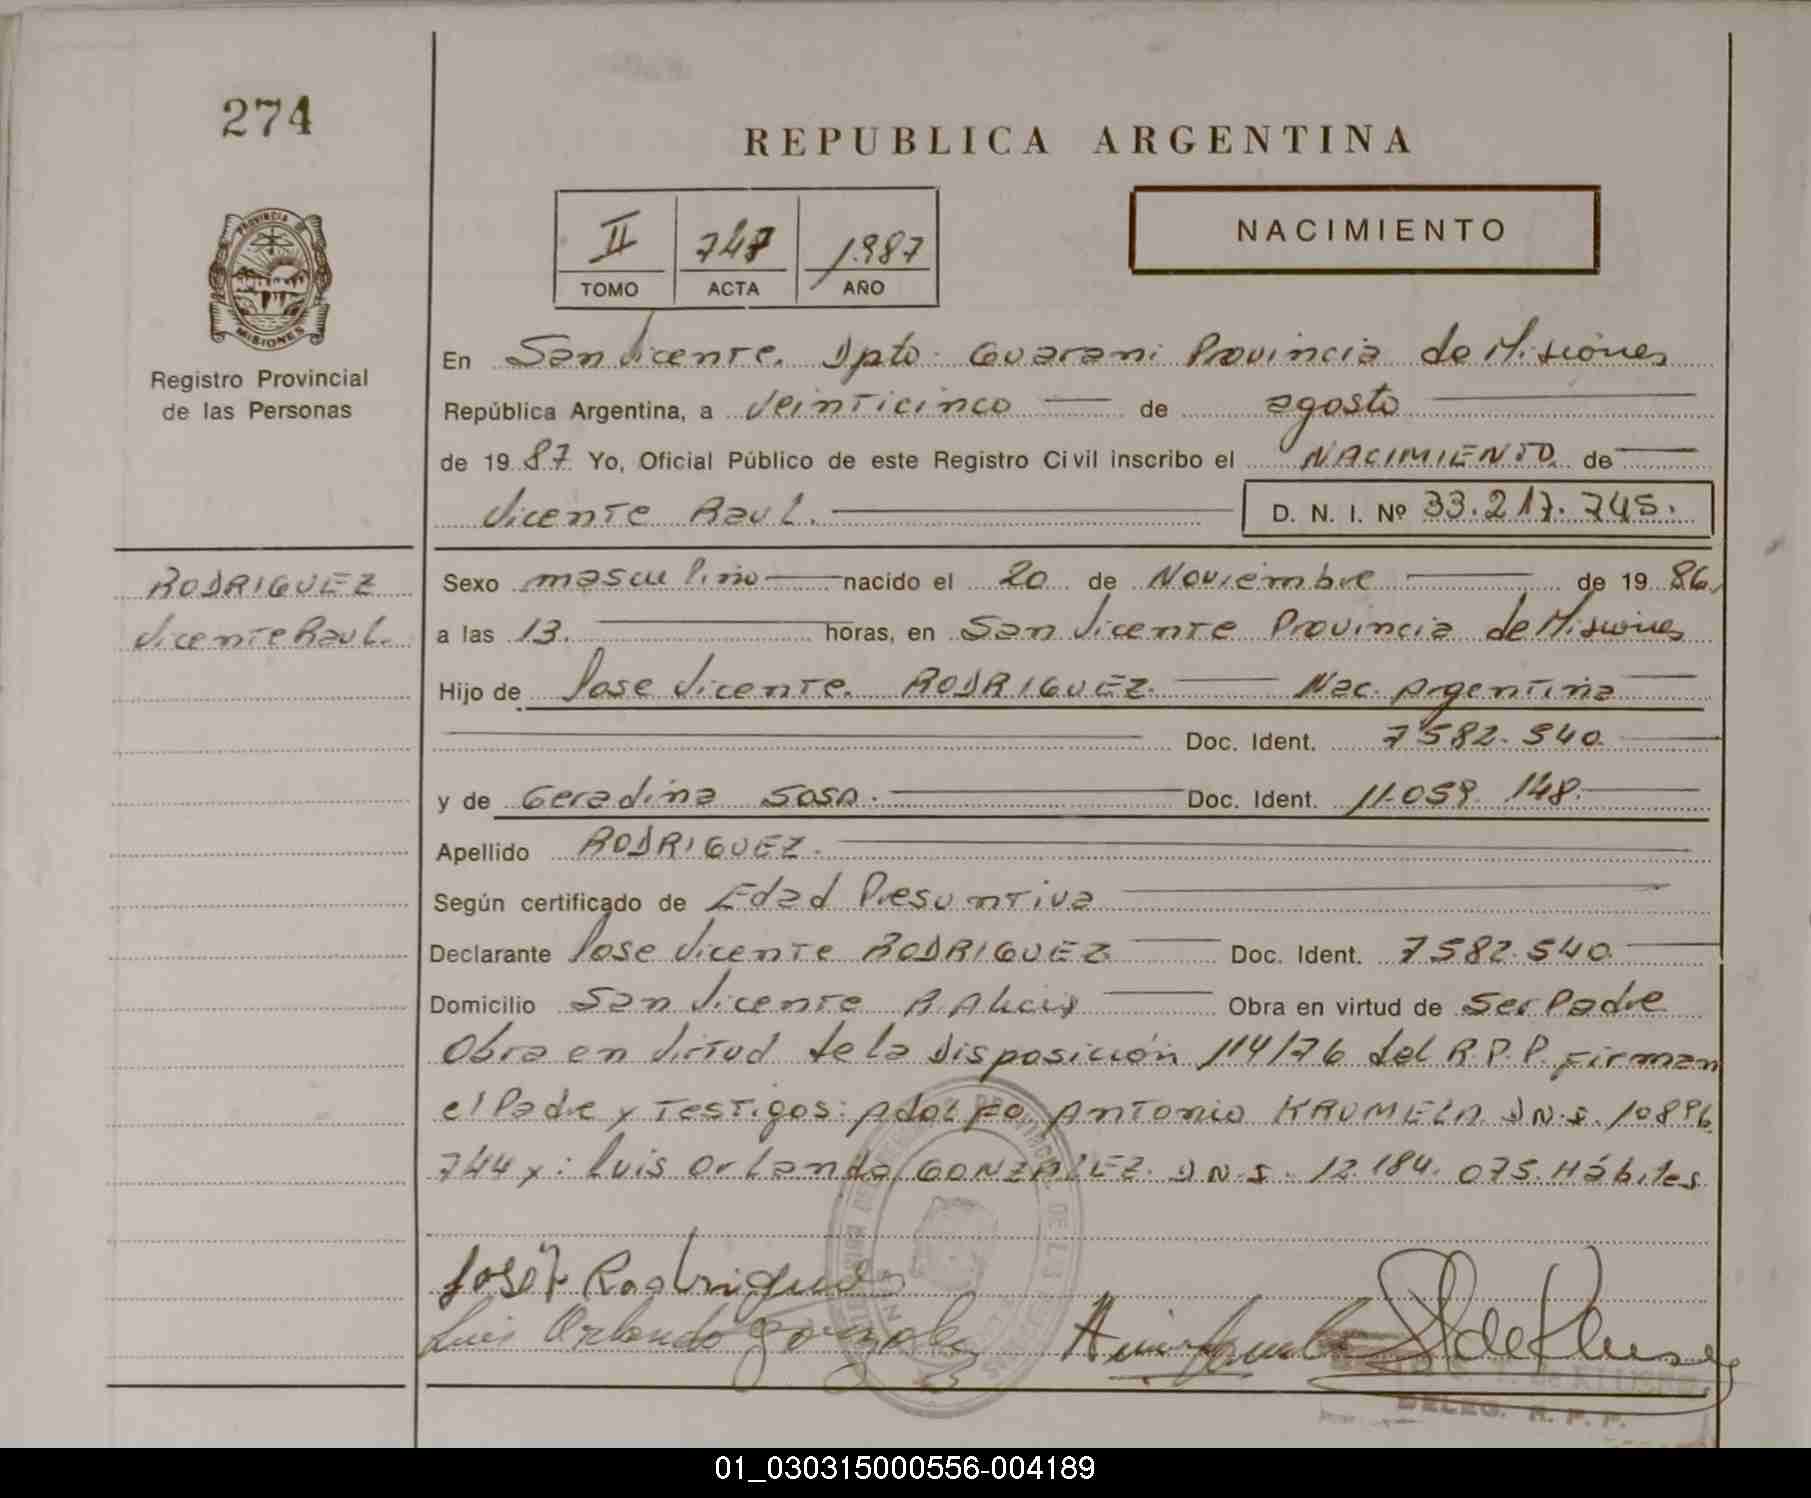 274
REPUBLICA ARGENTINA
NACIMIENTO
II 747 1.987
TOMO ACTA AÑO
PROVINCIA
MISIONES
Registro Provincial
de las Personas
En San Vicente. Dpto: Guarani Provincia de Misiones
República Argentina, a Veinticinco de agosto
de 19 87 Yo, Oficial Público de este Registro Civil inscribo el NACIMIENTO de
Vicente Raul. D. N. I. Nº 33.217.745.
RODRIGUEZ
Vicente Raul.
Sexo masculino nacido el 20 de Noviembre de 19 86
a las 13. horas, en San Vicente Provincia de Misiones
Hijo de Jose Vicente. RODRIGUEZ. Nac. Argentina
Doc. Ident. 7582.540
y de Geradina SOSA. Doc. Ident. 11.059.148.
Apellido RODRIGUEZ.
Según certificado de Edad Presuntiva
Declarante Jose Vicente RODRIGUEZ Doc. Ident. 7582.540
Domicilio San Vicente Obra en virtud de Ser Padre
Obra en Virtud de la Disposición 114/76 del R.P.P. Firman
el Padre y Testigos: ADOLFO ANTONIO KRUMELA DN.I. 10896
744 y: Luis Orlando GONZALEZ. DN.I. 12.184.075. Hábiles
José V. Rodrigues
Luis Orlando Gonzalez
DELEG. R. P. P.
01_030315000556-004189